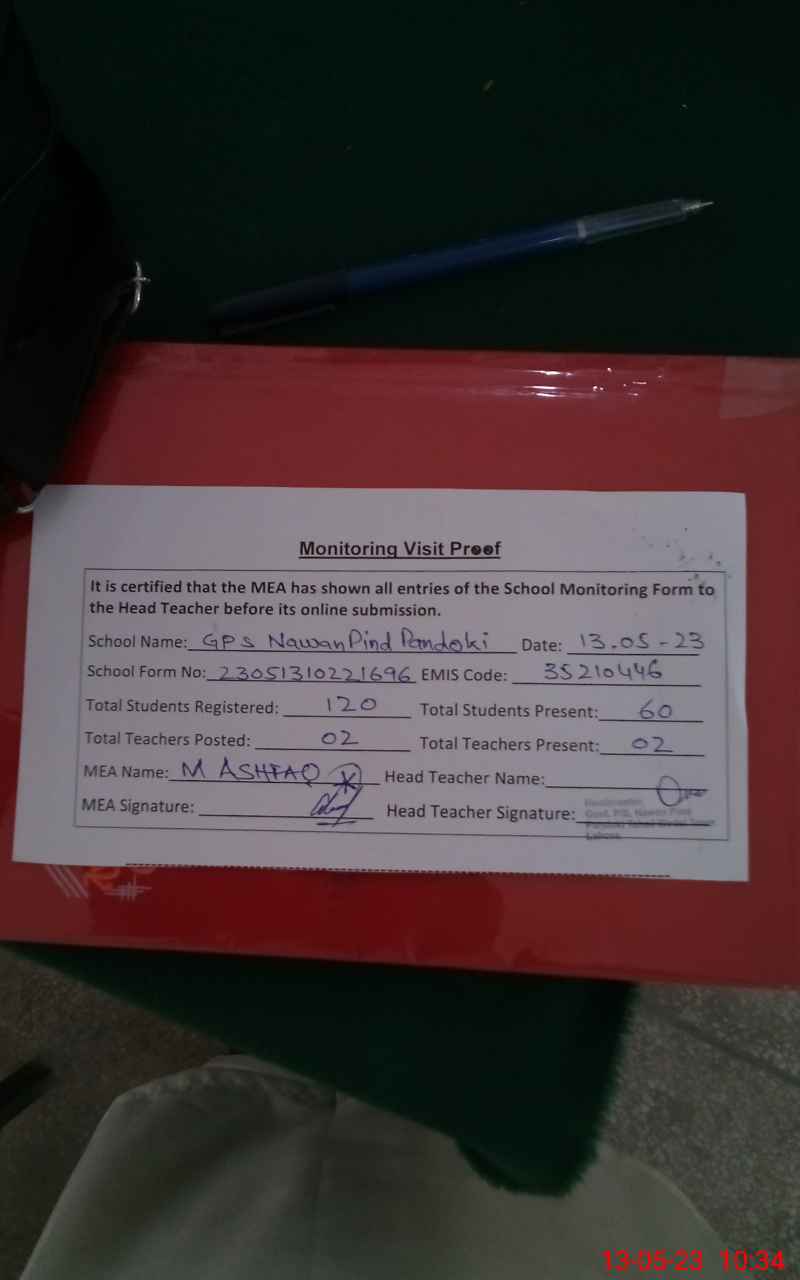 Monitoring Visit Proof
It is certified that the MEA has shown all entries of the School Monitoring Form to
the Head Teacher before its online submission.
School Name: GPS Nawan Pind Pandoki Date: 13.05-23
School Form No: 23051310221696 EMIS Code: 35210446
Total Students Registered: 120 Total Students Present: 60
Total Teachers Posted: 02 Total Teachers Present: 02
MEA Name: M ASHFAQ Head Teacher Name:
MEA Signature: Head Teacher Signature:
Headmaster
Govt. P/S, Nawan Pind
Lahore
13-05-23 10:34